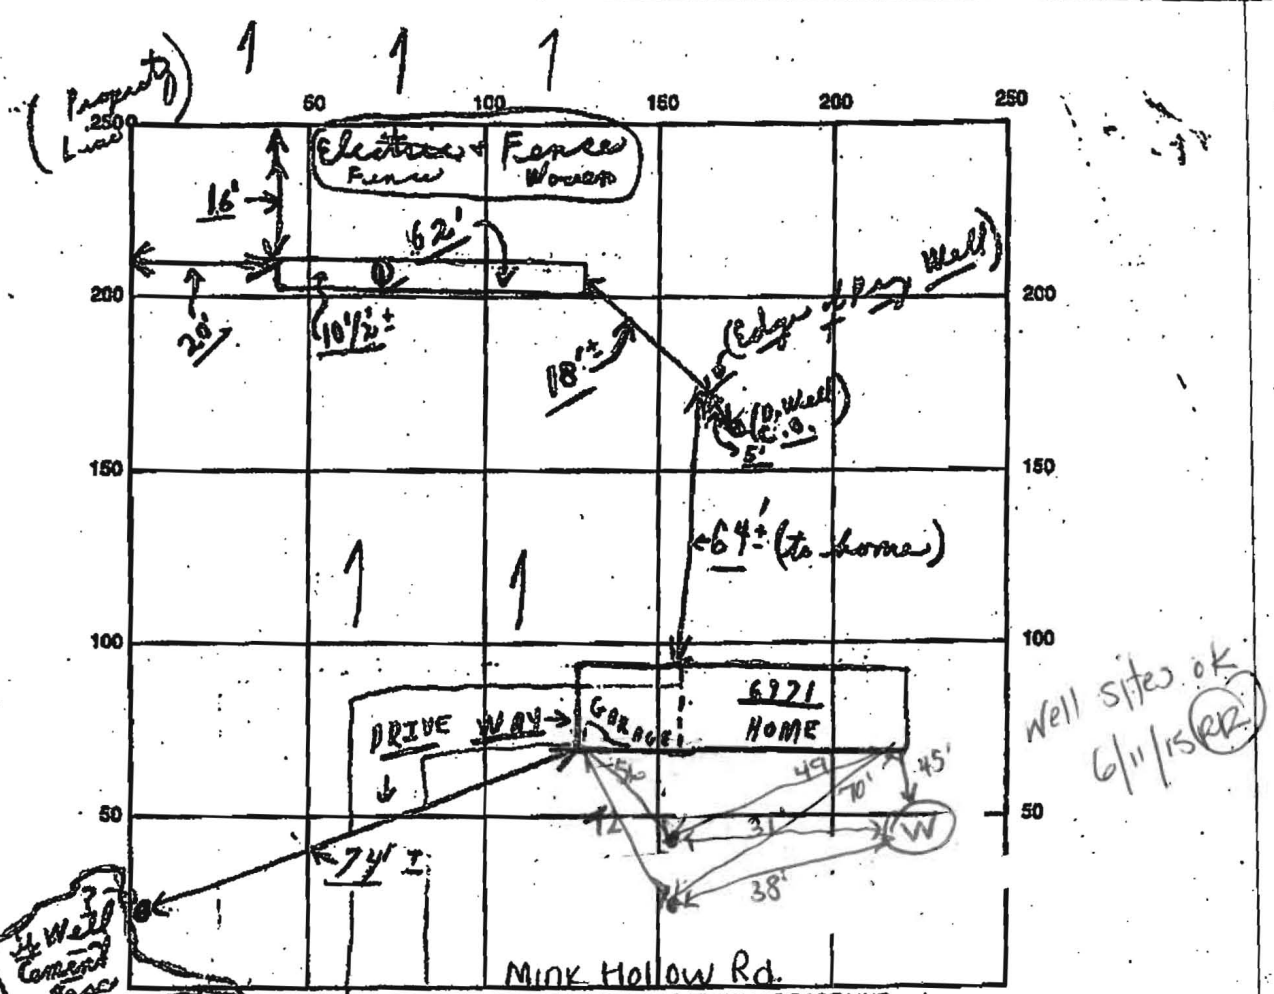 1 1 1
(Property
Line)
50 100 150 200 250
250
Electric + Fence
Fence Woven
16'
62'
①
200 200
20'
10 1/2' ±
18' ±
(Edge of Dry Well)
(D. Well
C.O.)
5'
150 150
64' ± (to home)
1 1
100 100
6971
HOME
GARAGE
DRIVE WAY
Well sites ok
6/11/15 RR
56 49 70' 45'
50 50
72 31' W
74' ±
38'
?
Well
Cement
Mink Hollow Rd.